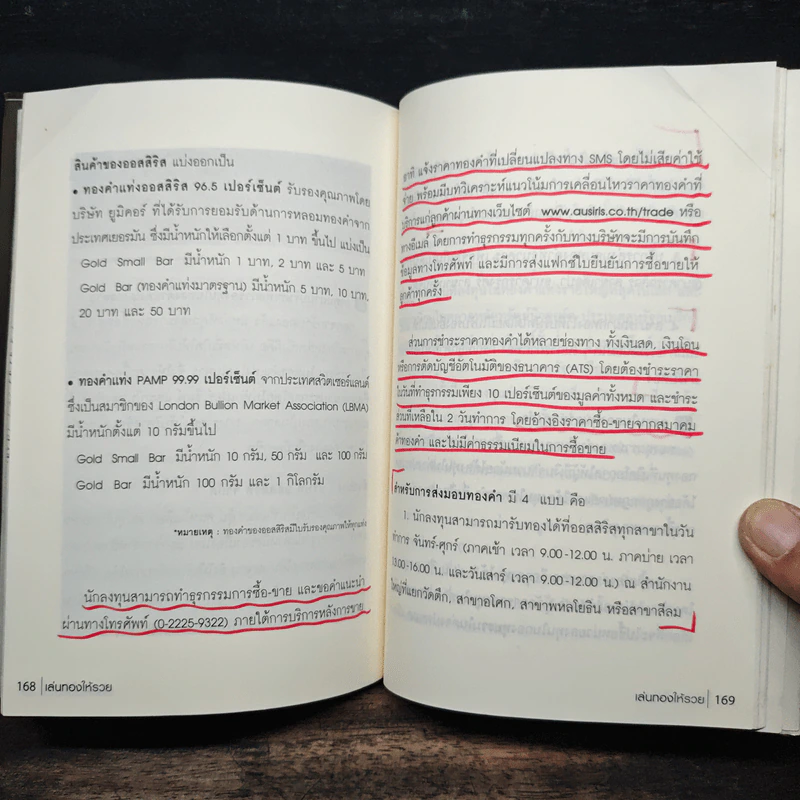 สินค้าของออสสิริส แบ่งออกเป็น
• ทองคำแท่งออสสิริส 96.5 เปอร์เซ็นต์ รับรองคุณภาพโดย
บริษัท ยูมิคอร์ ที่ได้รับการยอมรับด้านการหลอมทองคำจาก
ประเทศเยอรมัน ซึ่งมีน้ำหนักให้เลือกตั้งแต่ 1 บาท ขึ้นไป แบ่งเป็น
Gold Small Bar มีน้ำหนัก 1 บาท, 2 บาท และ 5 บาท
Gold Bar (ทองคำแท่งมาตรฐาน) มีน้ำหนัก 5 บาท, 10 บาท,
20 บาท และ 50 บาท
• ทองคำแท่ง PAMP 99.99 เปอร์เซ็นต์ จากประเทศสวิตเซอร์แลนด์
ซึ่งเป็นสมาชิกของ London Bullion Market Association (LBMA)
มีน้ำหนักตั้งแต่ 10 กรัมขึ้นไป
Gold Small Bar มีน้ำหนัก 10 กรัม, 50 กรัม และ 100 กรัม
Gold Bar มีน้ำหนัก 100 กรัม และ 1 กิโลกรัม
*หมายเหตุ : ทองคำของออสสิริสมีใบรับรองคุณภาพให้ทุกแท่ง
นักลงทุนสามารถทำธุรกรรมการซื้อ-ขาย และขอคำแนะนำ
ผ่านทางโทรศัพท์ (0-2225-9322) ภายใต้การบริการหลังการขาย
168 | เล่นทองให้รวย
อาทิ แจ้งราคาทองคำที่เปลี่ยนแปลงทาง SMS โดยไม่เสียค่าใช้
จ่าย พร้อมมีบทวิเคราะห์แนวโน้มการเคลื่อนไหวราคาทองคำที่
บริการแก่ลูกค้าผ่านทางเว็บไซต์ www.ausiris.co.th/trade หรือ
ทางอีเมล์ โดยการทำธุรกรรมทุกครั้งกับทางบริษัทจะมีการบันทึก
ข้อมูลทางโทรศัพท์ และมีการส่งแฟกซ์ใบยืนยันการซื้อขายให้
ลูกค้าทุกครั้ง
ส่วนการชำระราคาทองคำได้หลายช่องทาง ทั้งเงินสด, เงินโอน
หรือการตัดบัญชีอัตโนมัติของธนาคาร (ATS) โดยต้องชำระราคา
ในวันที่ทำธุรกรรมเพียง 10 เปอร์เซ็นต์ของมูลค่าทั้งหมด และชำระ
ส่วนที่เหลือใน 2 วันทำการ โดยอ้างอิงราคาซื้อ-ขายจากสมาคม
ค้าทองคำ และไม่มีค่าธรรมเนียมในการซื้อขาย
สำหรับการส่งมอบทองคำ มี 4 แบบ คือ
1. นักลงทุนสามารถมารับทองได้ที่ออสสิริสทุกสาขาในวัน
ทำการ จันทร์-ศุกร์ (ภาคเช้า เวลา 9.00-12.00 น. ภาคบ่าย เวลา
13.00-16.00 น. และวันเสาร์ เวลา 9.00-12.00 น.) ณ สำนักงาน
ใหญ่ที่แยกวัดตึก, สาขาอโศก, สาขาพหลโยธิน หรือสาขาสีลม
เล่นทองให้รวย | 169